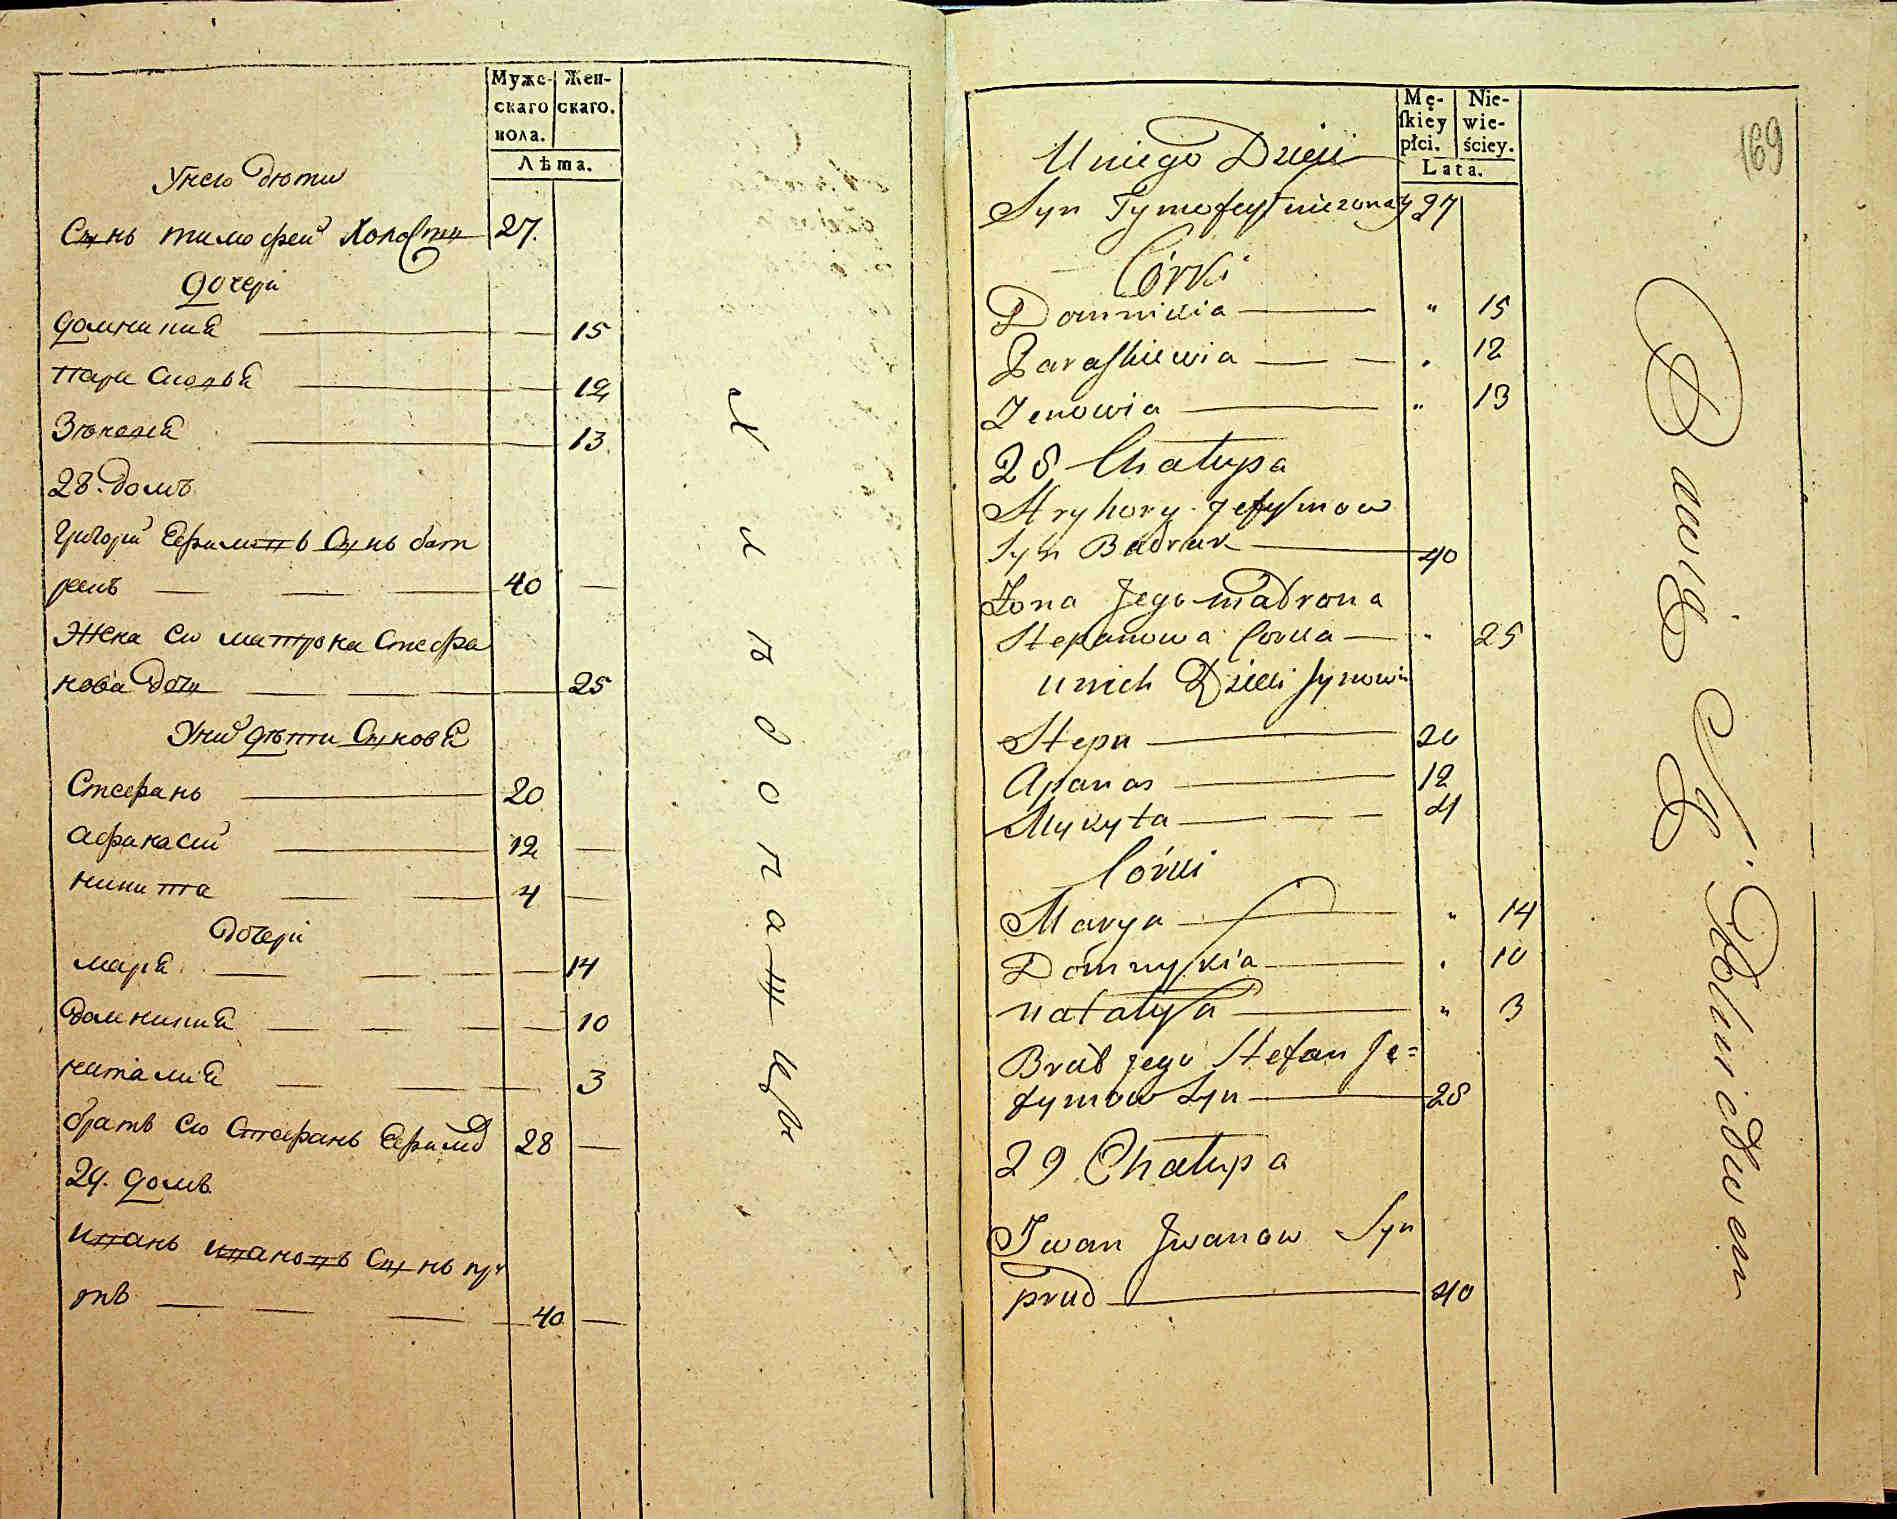 Муже- Жен-
скаго скаго.
пола.
Лѣта.
У него дѣти
Сынъ тимофей Холостъ 27.
дочери
домникия 15
парасковья 12
Зѣновия 13
28. домъ
Григорий Ефимовъ Сынъ бат
ракъ 40
Жена его матрона Стефа
нова дочь 25
У них дѣти Сыновя
Стефанъ 20
афанасий 12
никита 4
дочери
мария 14
домникия 10
наталия 3
братъ его Стефанъ Ефимов 28
29. домъ
иванъ ивановъ Сынъ пру
тъ 40
Mę- Nie-
ſkiey wie-
płci. ściey.
Lata.
169
U niego Dzieci
Syn Tymofey nieżonaty 27
Córki
Domnikia " 15
Paraskiewia " 12
Zenowia " 13
28 Chałupa
Hryhory Jefymow
Syn Badrak 40
Żona Jego Madrona
Stepanowa Corka " 25
u nich Dzieci Synowie
Stepan 20
Apanas 12
Mykyta 4
Córki
Marya " 14
Domnykia " 10
natalya " 3
Brat jego Stefan Je=
fymow Syn 28
29 Chałupa
Iwan Jwanow Syn
prud 40